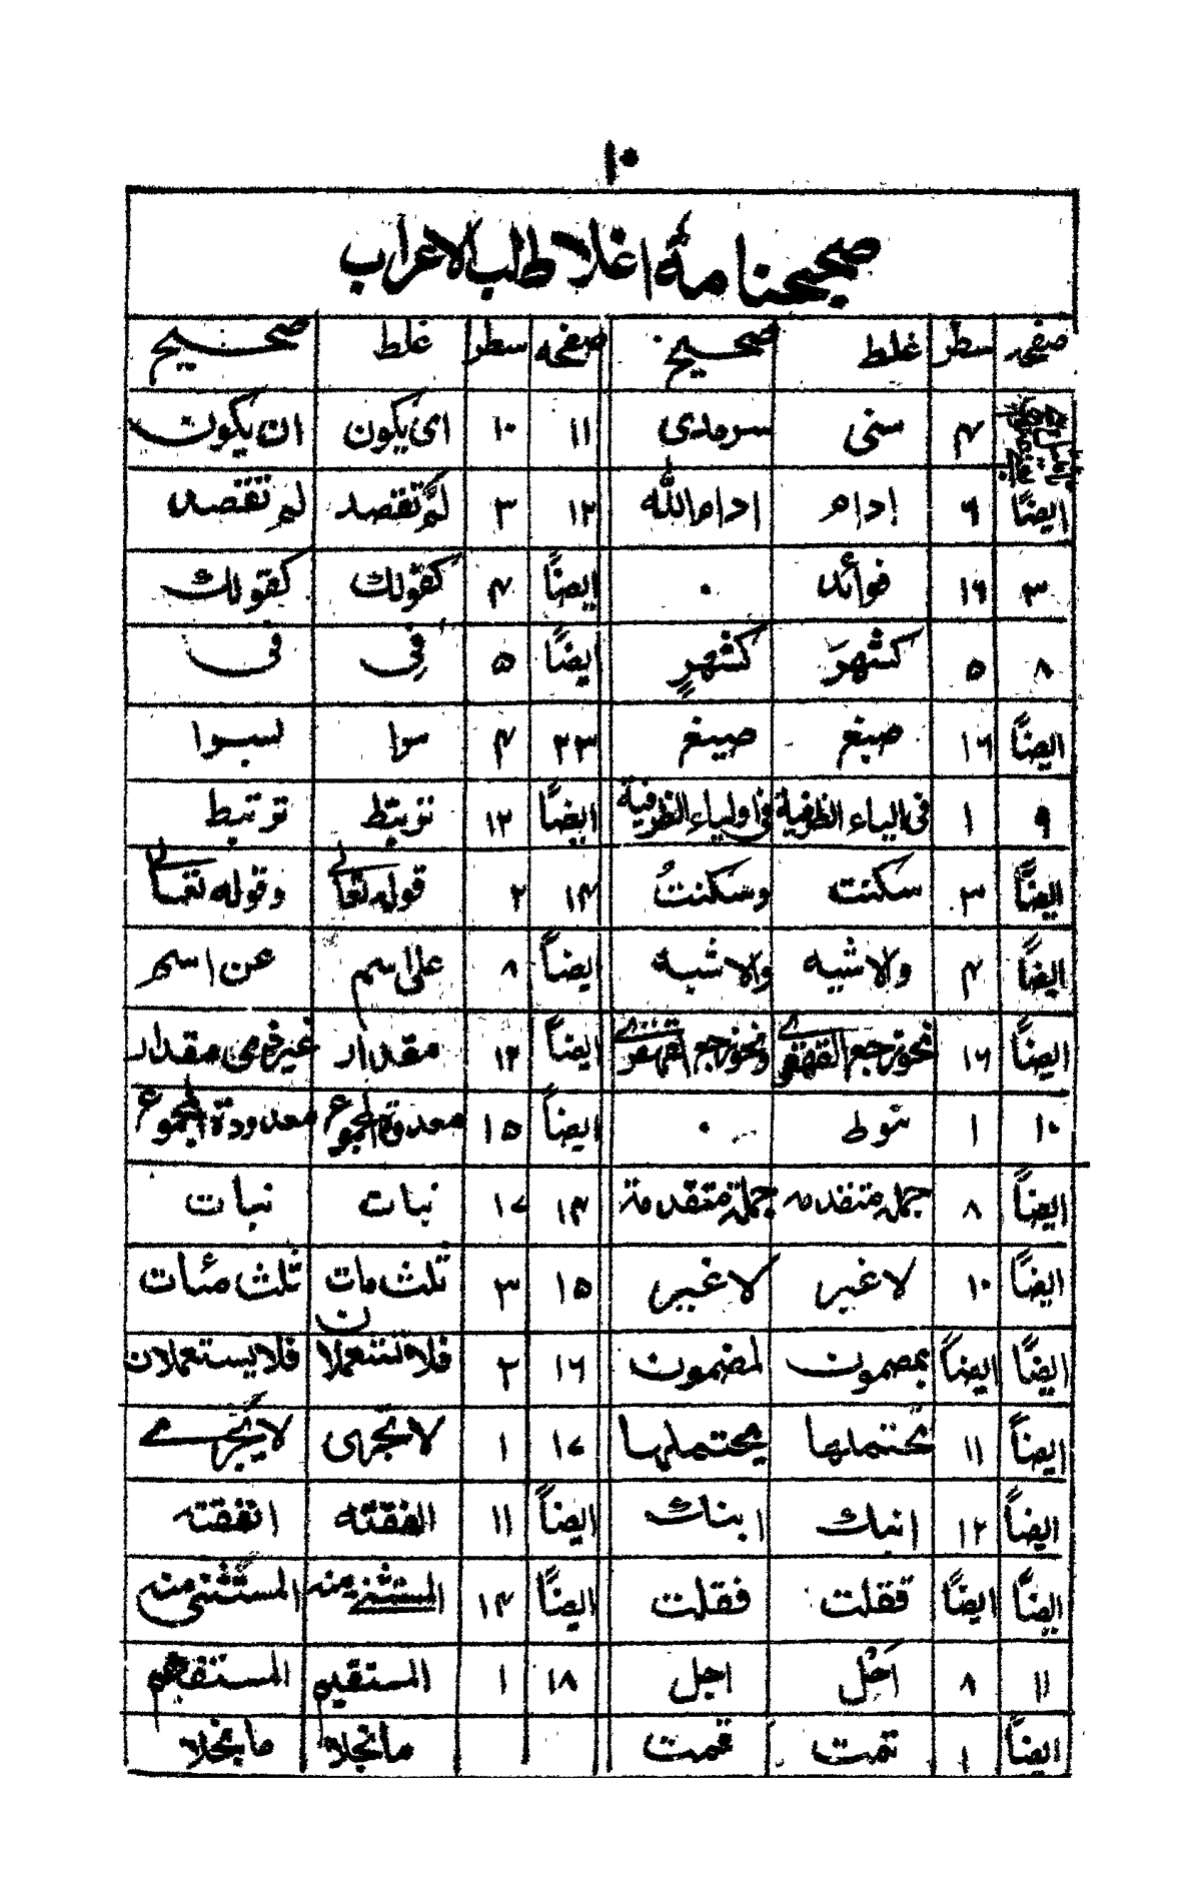 ١٠
صحیحنامهٔ اغلاط لب الاعراب
صفحه سطر غلط صحیح صفحه سطر غلط صحیح
۴ سنی سرمدی ۱۱ ۱۰ ای یکون ان یکون
ایضاً ۹ ادام ادام الله ۱۲ ۳ لم تقصد لم تقصد
۳ ۱۶ فوائد ۰ ایضاً ۴ کقولك کقولك
۸ ۵ کشهرَ کشهرٍ ایضاً ۵ فی فی
ایضاً ۱۶ صبغ صیغ ۲۳ ۴ سوا لسبوا
۹ ۱ فی الیاء الظرفیة فی اولیاء الظرفیة ایضاً ۱۲ تربتط ترتبط
ایضاً ۳ سکنت وسکنتُ ۱۴ ۲ قوله تعالی وقوله تعالی
ایضاً ۴ ولاشیه والاشبه ایضاً ۸ علی اسم عن اسم
ایضاً ۱۶ نحو رجع القهقری ونحو رجع القهقری ایضاً ۱۲ مقدار غیر فرمی مقدار
۱۰ ۱ نوط ۰ ایضاً ۱۵ معدوة المجموع معدودة المجموع
ایضاً ۸ جملہ متقدمہ جملة متقدمة ۱۴ ۱۷ نبات نبات
ایضاً ۱۰ لاغیر لاغیر ۱۵ ۳ ثلث مات ثلث مئات
ایضاً ایضاً بمصمون لمضمون ۱۶ ۲ فلا تستعملان فلا یستعملان
ایضاً ۱۱ تحتملها یحتملها ۱۷ ۱ لاتجری لایجری
ایضاً ۱۲ انبك ابنك ایضاً ۱۱ الفقته انفقته
ایضاً ایضاً قفلت فقلت ایضاً ۱۴ المستثنی منه المستثنی منه
۱۱ ۸ احل اجل ۱۸ ۱ المستقیم المستفهم
ایضاً ۱ تمت قمت مانجلا مابخلا